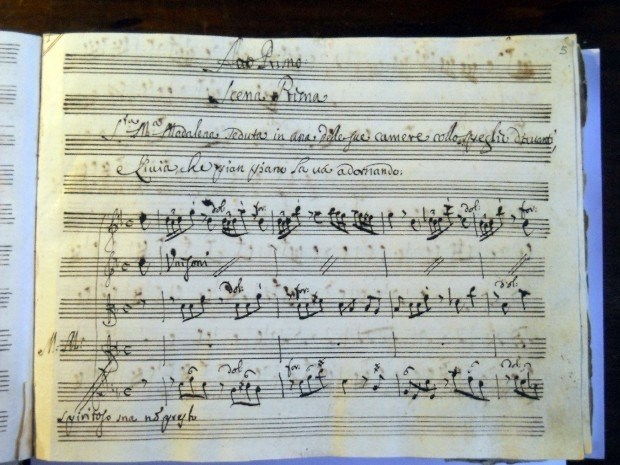 5
Atto Primo
Scena Prima
S.ta M.a Madalena Seduta in una delle sue camere collo speglie d'avanti,
e Livia che pian piano la và adornando:
dol: for: dol: for:
Unisoni
dol: for: dol:
M. M:
dol: for: dol:
Spiritoso ma nõ presto